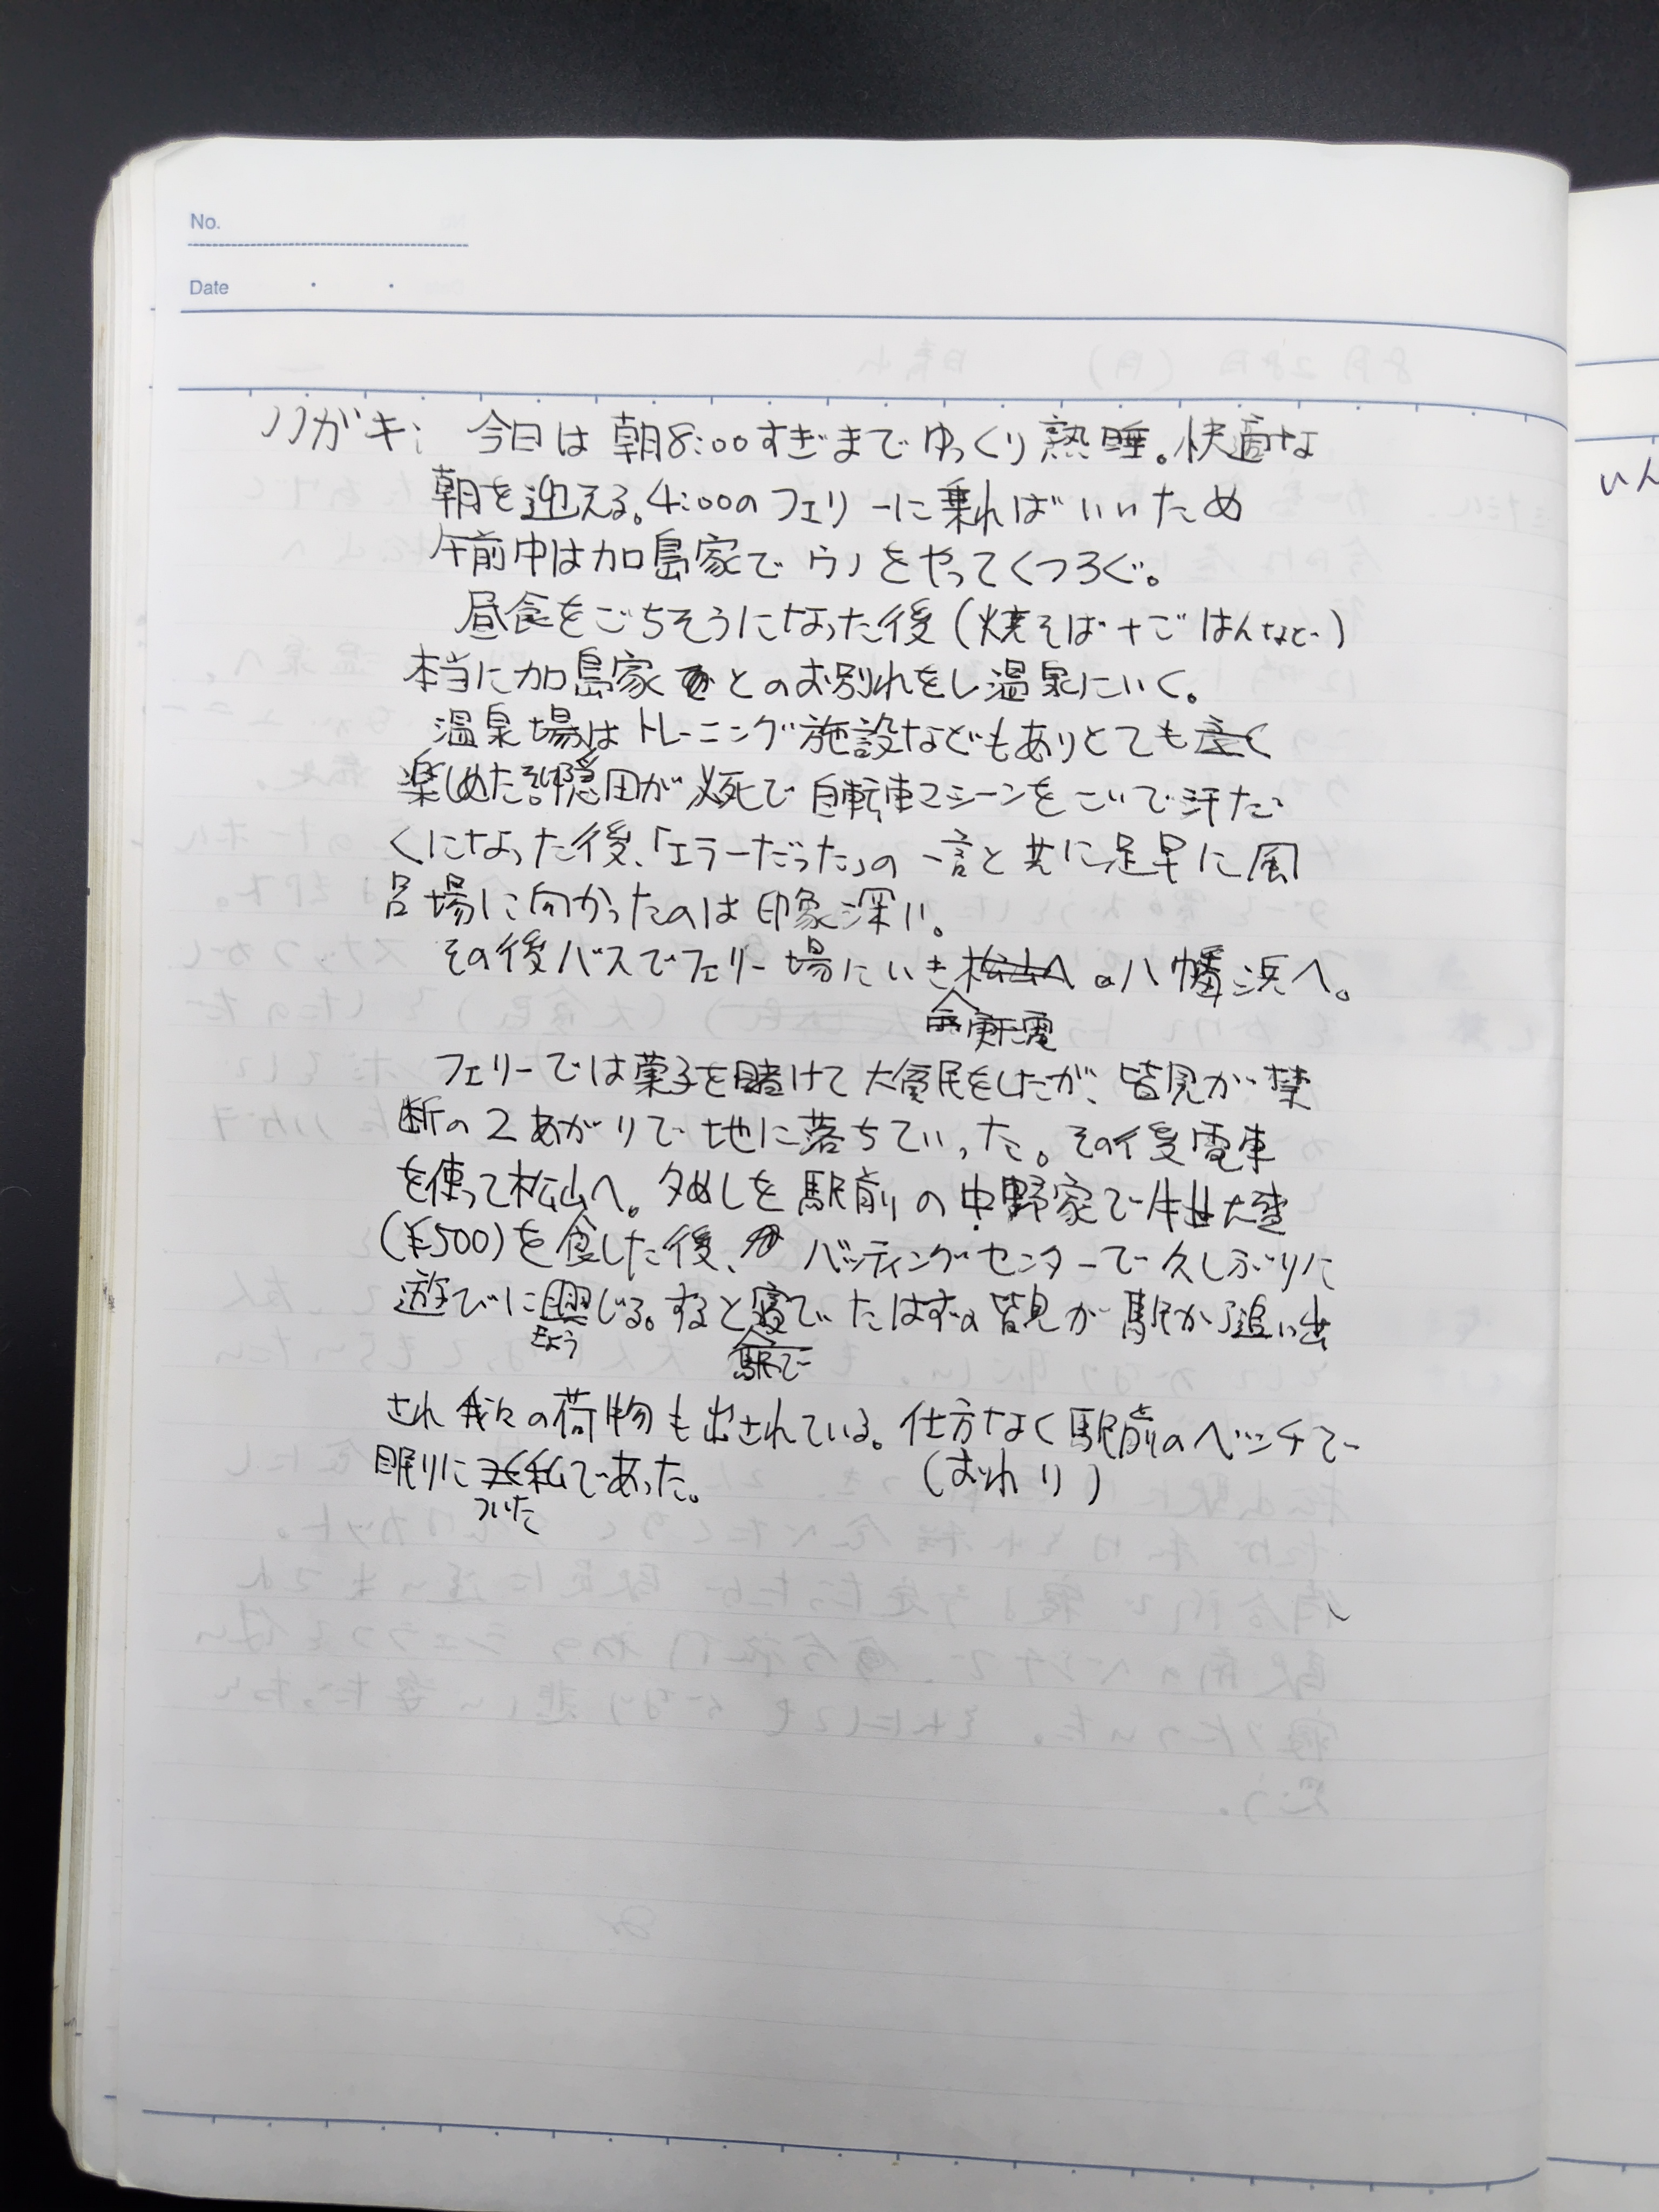 No.
Date
ハガキ; 今日は朝8:00すぎまでゆっくり熟睡。快適な
朝を迎える。4:00のフェリーに乗ればいいため
午前中は加島家でウノをやってくつろぐ。
昼食をごちそうになった後(焼そば+ごはんなど)
本当に加島家とのお別れをし温泉にいく。
温泉場はトレーニング施設などもありとても
楽しめた。隠田が必死で自転車マシーンをこいで汗だ
くになった後、「エラーだった」の一言と共に足早に風
呂場に向かったのは印象深い。
その後バスでフェリー場にいき 八幡浜へ。
フェリーでは菓子を賭けて大貧民をしたが、皆見が禁
断の2あがりで地に落ちていった。その後電車
を使って松山へ。夕めしを駅前の中野家で牛丼大盛
(¥500)を食した後、バッティングセンターで久しぶりに
遊びに興じる。すると寝ていたはずの皆見が駅から追い出
きょう
駅で
され我々の荷物も出されている。仕方なく駅前のベンチで
眠りに 私であった。 (おわり)
ついた
いん